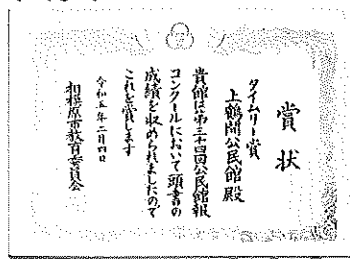 賞状
タイムリー賞
上鶴間公民館殿
貴館は第三十四回公民館報
コンクールにおいて頭書の
成績を収められましたので
これを賞します
令和五年二月四日
相模原市教育委員会